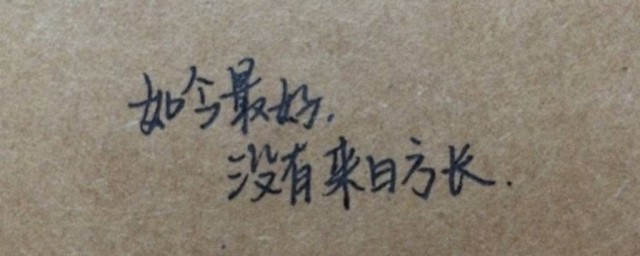 如今最好.
没有来日方长.